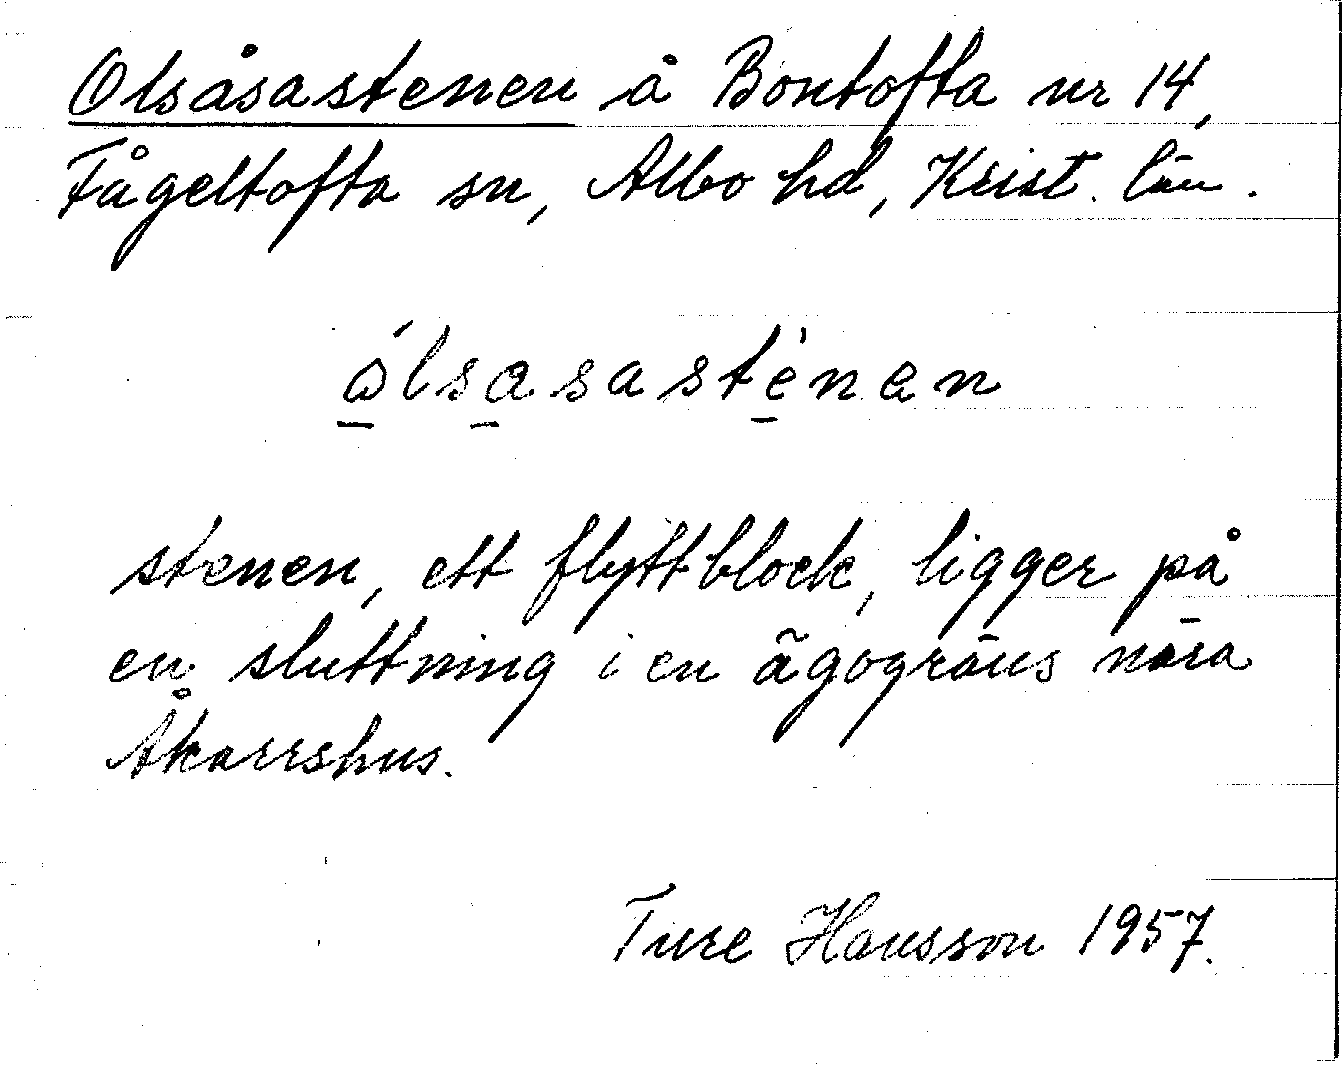 Olsåsastenen å Bontofta nr 14,
Fågeltofta sn, Albo hd, Krist. län.
ólsasastènan
stenen, ett flyttblock, ligger på
en sluttning i en ägogräns nära
Åkarrshus.
Ture Hansson 1957.